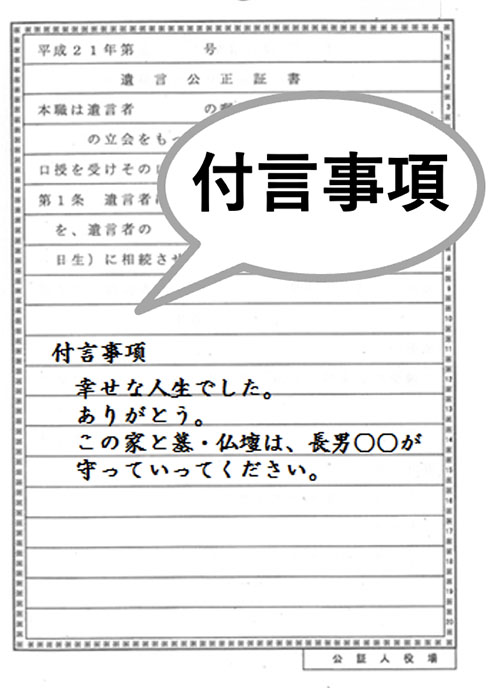 平成21年第　　　号
遺言公正証書
本職は遺言者　　　の
の立会をもっ
口授を受けその
第1条　遺言者
を、遺言者の
日生）に相続させ
付言事項
付言事項
幸せな人生でした。
ありがとう。
この家と墓・仏壇は、長男〇〇が
守っていってください。
公証人役場